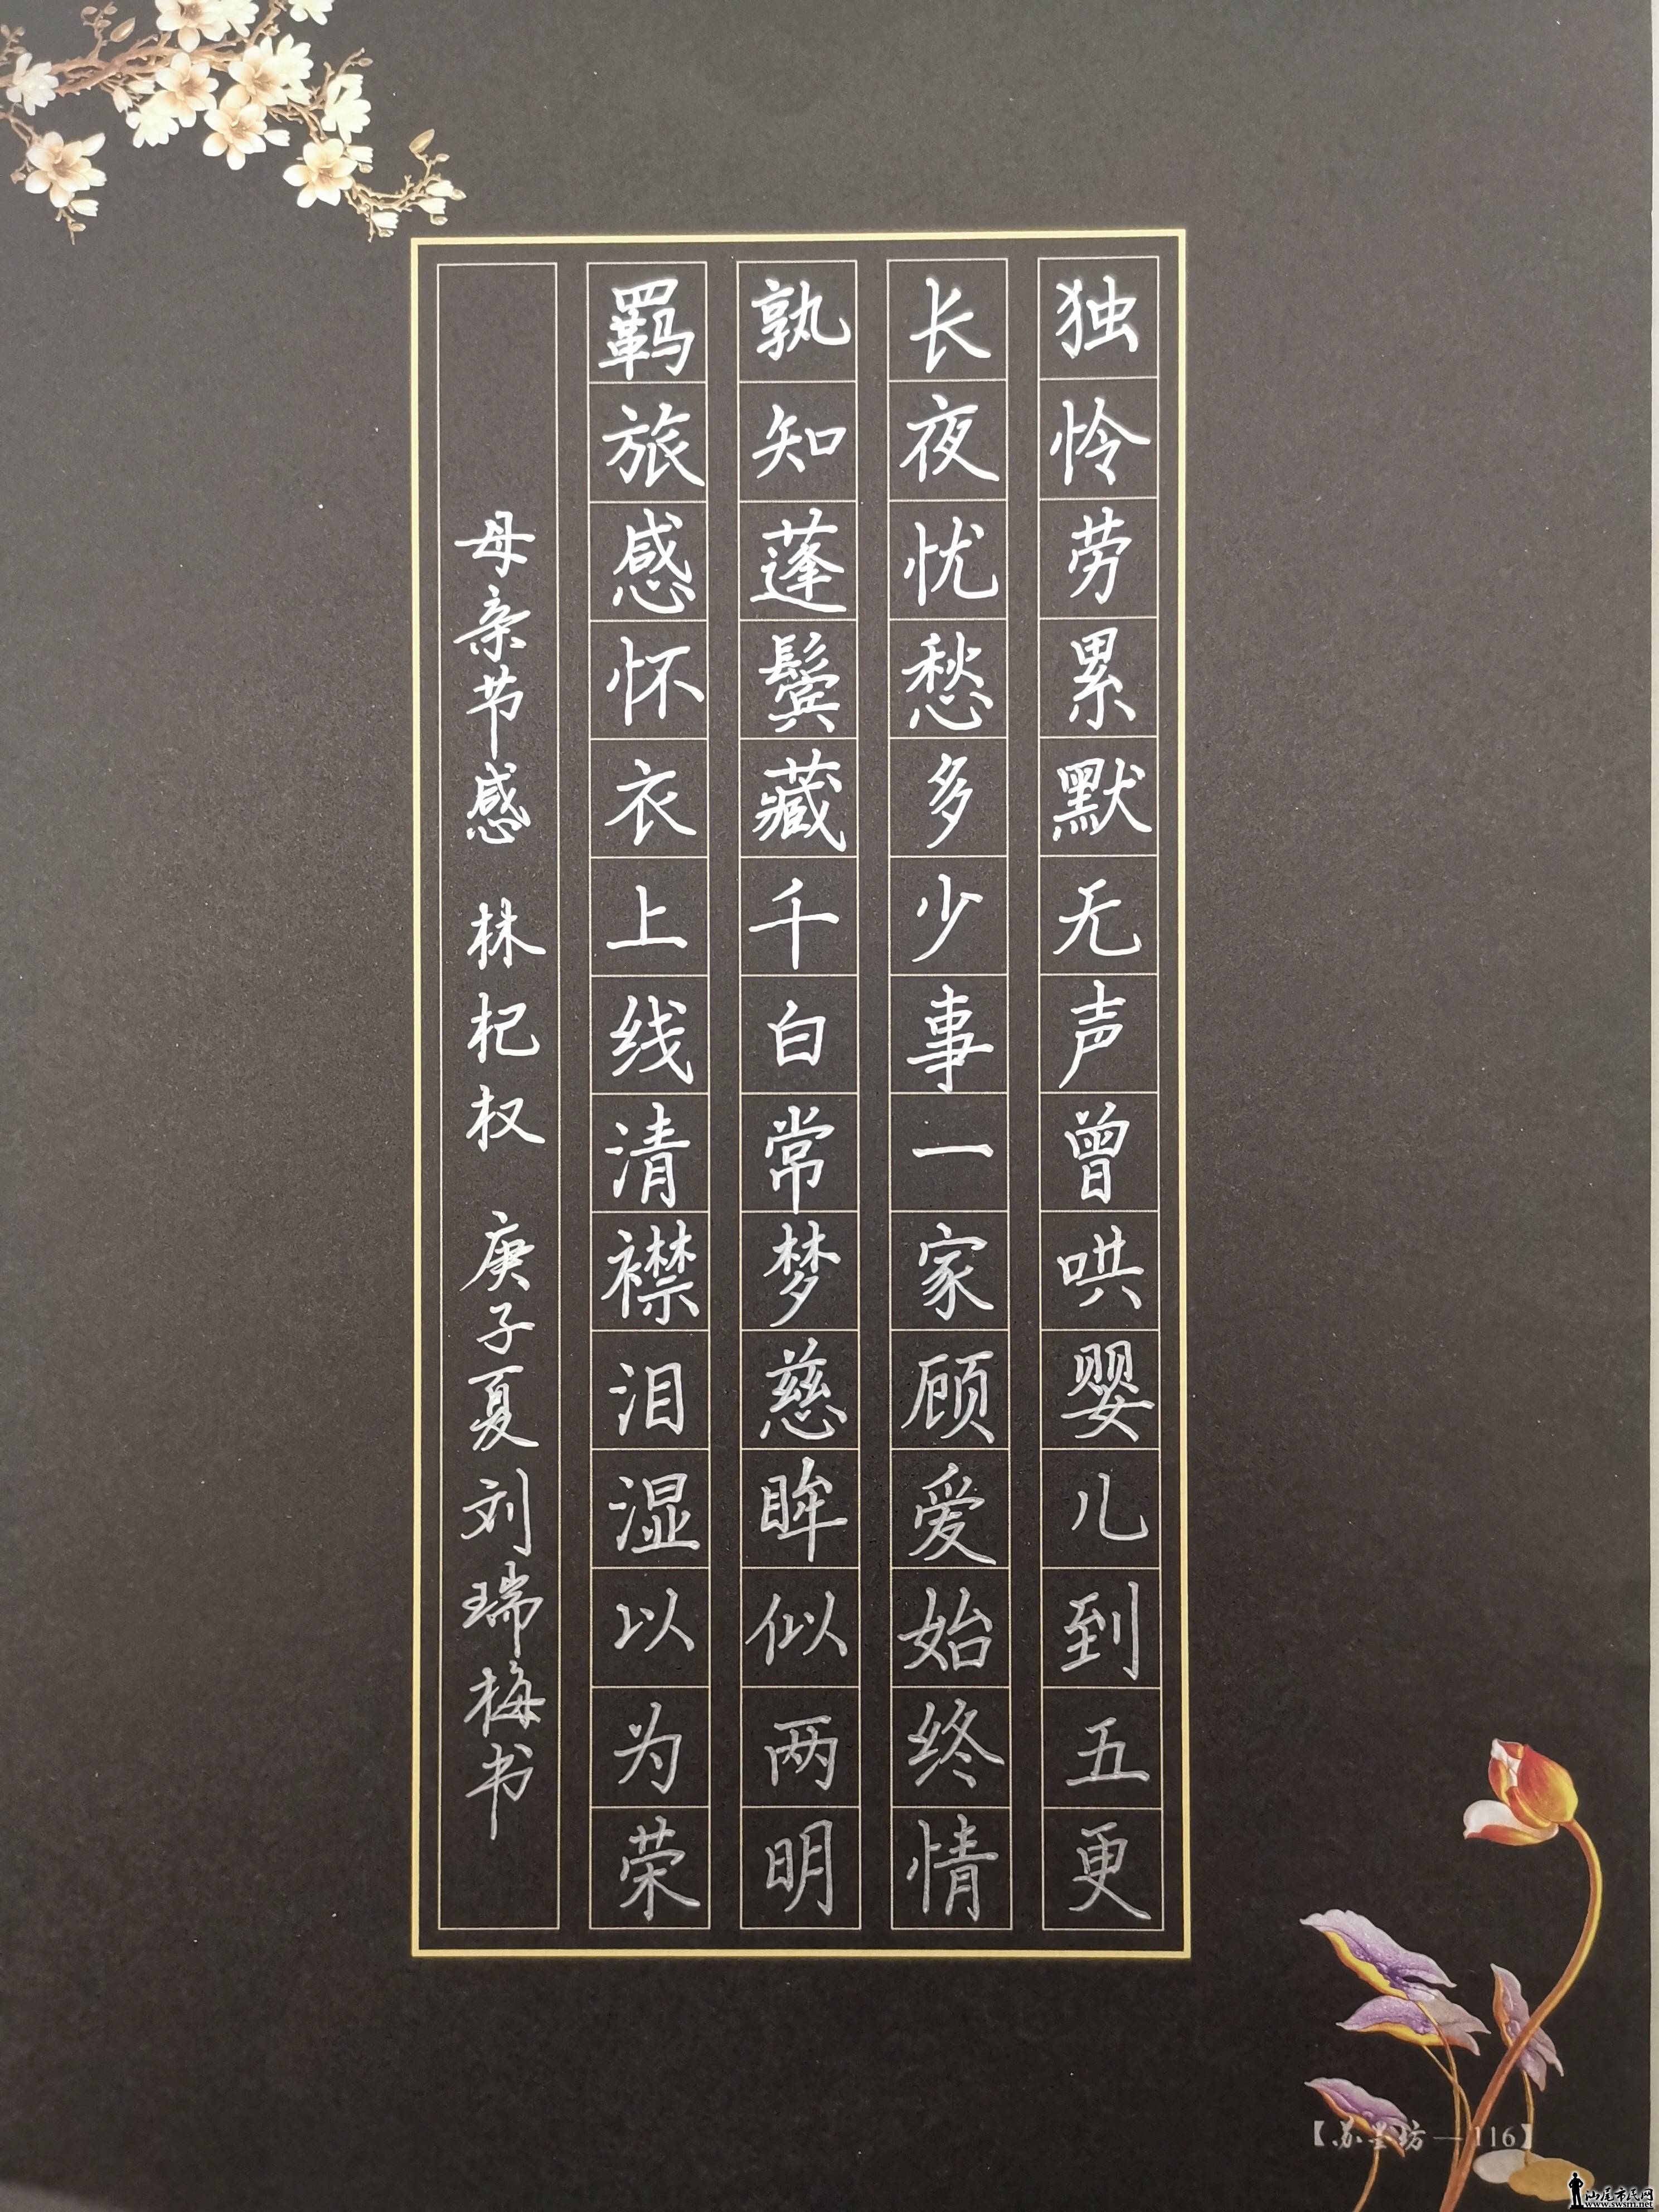 独怜劳累默无声曾哄婴儿到五更
长夜忧愁多少事一家顾爱始终情
孰知蓬鬓藏千白常梦慈眸似两明
羁旅感怀衣上线清襟泪湿以为荣
母亲节感 林杞权 庚子夏刘瑞梅书
【苏墨坊—116】
汕尾市民网
www.swsm.net